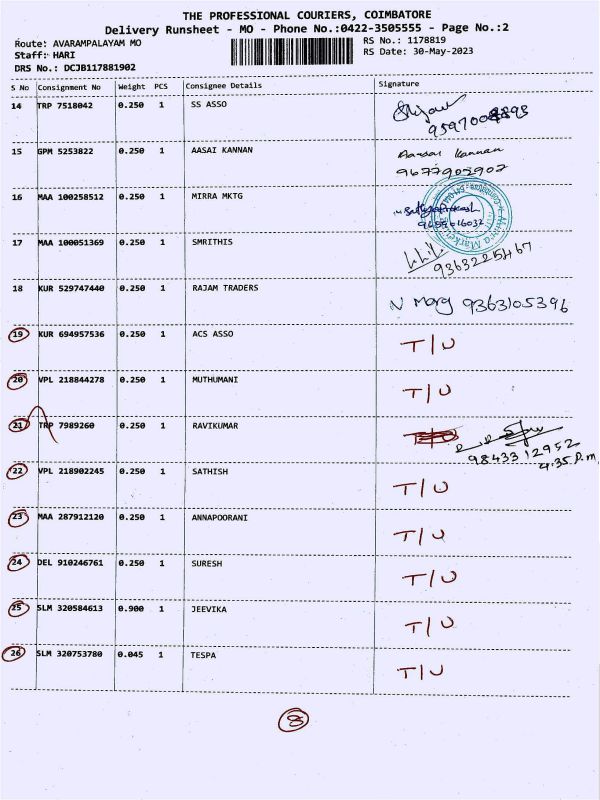 THE PROFESSIONAL COURIERS, COIMBATORE
Delivery Runsheet - MO - Phone No.:0422-3505555 - Page No.:2
Route: AVARAMPALAYAM MO
RS No.: 1178819
Staff: HARI
RS Date: 30-May-2023
DRS No.: DCJB117881902
S No Consignment No Weight PCS Consignee Details Signature
14 TRP 7518042 0.250 1 SS ASSO
15 GPM 5253822 0.250 1 AASAI KANNAN Aasai Kannan
9677902902
16 MAA 100258512 0.250 1 MIRRA MKTG
17 MAA 100051369 0.250 1 SMRITHIS
9363225467
18 KUR 529747440 0.250 1 RAJAM TRADERS 9363105396
19 KUR 694957536 0.250 1 ACS ASSO T/U
20 VPL 218844278 0.250 1 MUTHUMANI T/U
21 TRP 7989260 0.250 1 RAVIKUMAR
9843312952
4.35 P.m
22 VPL 218902245 0.250 1 SATHISH T/U
23 MAA 287912120 0.250 1 ANNAPOORANI T/U
24 DEL 910246761 0.250 1 SURESH T/U
25 SLM 320584613 0.900 1 JEEVIKA T/U
26 SLM 320753780 0.045 1 TESPA T/U
8